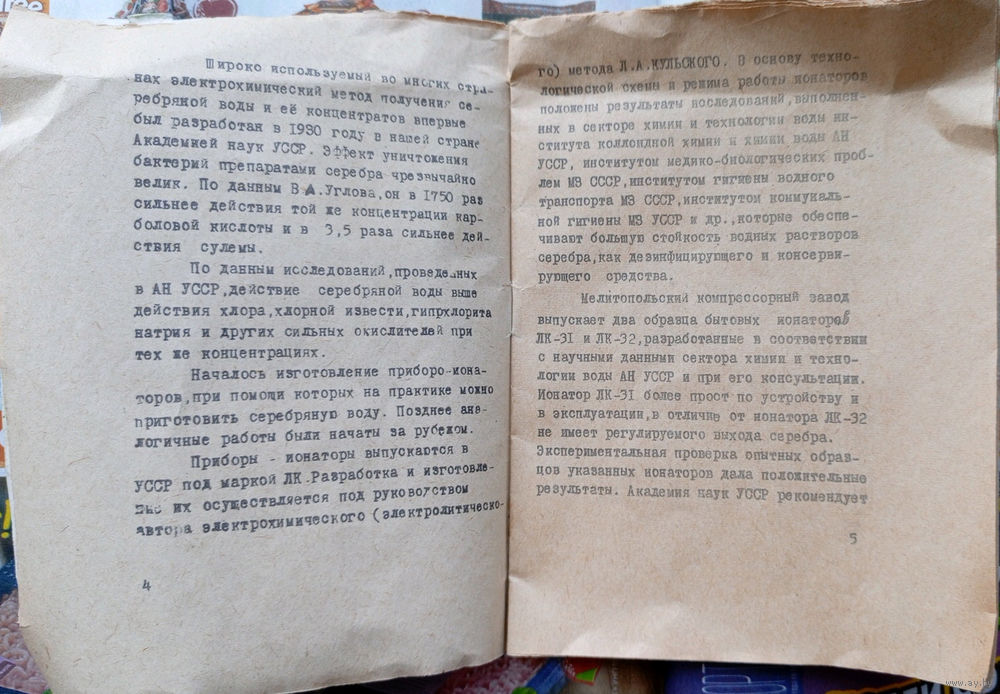 Широко используемый во многих стра-
нах электрохимический метод получения се-
ребряной воды и её концентратов впервые
был разработан в 1930 году в нашей стране
Академией наук УССР. Эффект уничтожения
бактерий препаратами серебра чрезвычайно
велик. По данным В.А.Углова,он в 1750 раз
сильнее действия той же концентрации кар-
боловой кислоты и в 3,5 раза сильнее дей-
ствия сулемы.
По данным исследований,проведенных
в АН УССР,действие серебряной воды выше
действия хлора,хлорной извести,гипрхлорита
натрия и других сильных окислителей при
тех же концентрациях.
Началось изготовление приборо-иона-
торов,при помощи которых на практике можно
приготовить серебряную воду. Позднее ана-
логичные работы были начаты за рубежом.
Приборы - ионаторы выпускаются в
УССР под маркой ЛК.Разработка и изготовле-
ние их осуществляется под руководством
автора электрохимического (электролитическо-
4
го) метода Л.А.КУЛЬСКОГО. В основу техно-
логической схемы и режима работы ионаторов
положены результаты исследований,выполнен-
ных в секторе химии и технологии воды ин-
ститута коллоидной химии и химии воды АН
УССР, институтом медико-биологических проб-
лем МЗ СССР,институтом гигиены водного
транспорта МЗ СССР,институтом коммуналь-
ной гигиены МЗ УССР и др.,которые обеспе-
чивают большую стойкость водных растворов
серебра,как дезинфицирующего и консерви-
рующего средства.
Мелитопольский компрессорный завод
выпускает два образца бытовых ионаторов
ЛК-31 и ЛК-32,разработанные в соответствии
с научными данными сектора химии и техно-
логии воды АН УССР и при его консультации.
Ионатор ЛК-31 более прост по устройству и
в эксплуатации,в отличие от ионатора ЛК-32
не имеет регулируемого выхода серебра.
Экспериментальная проверка опытных образ-
цов указанных ионаторов дала положительные
результаты. Академия наук УССР рекомендует
5